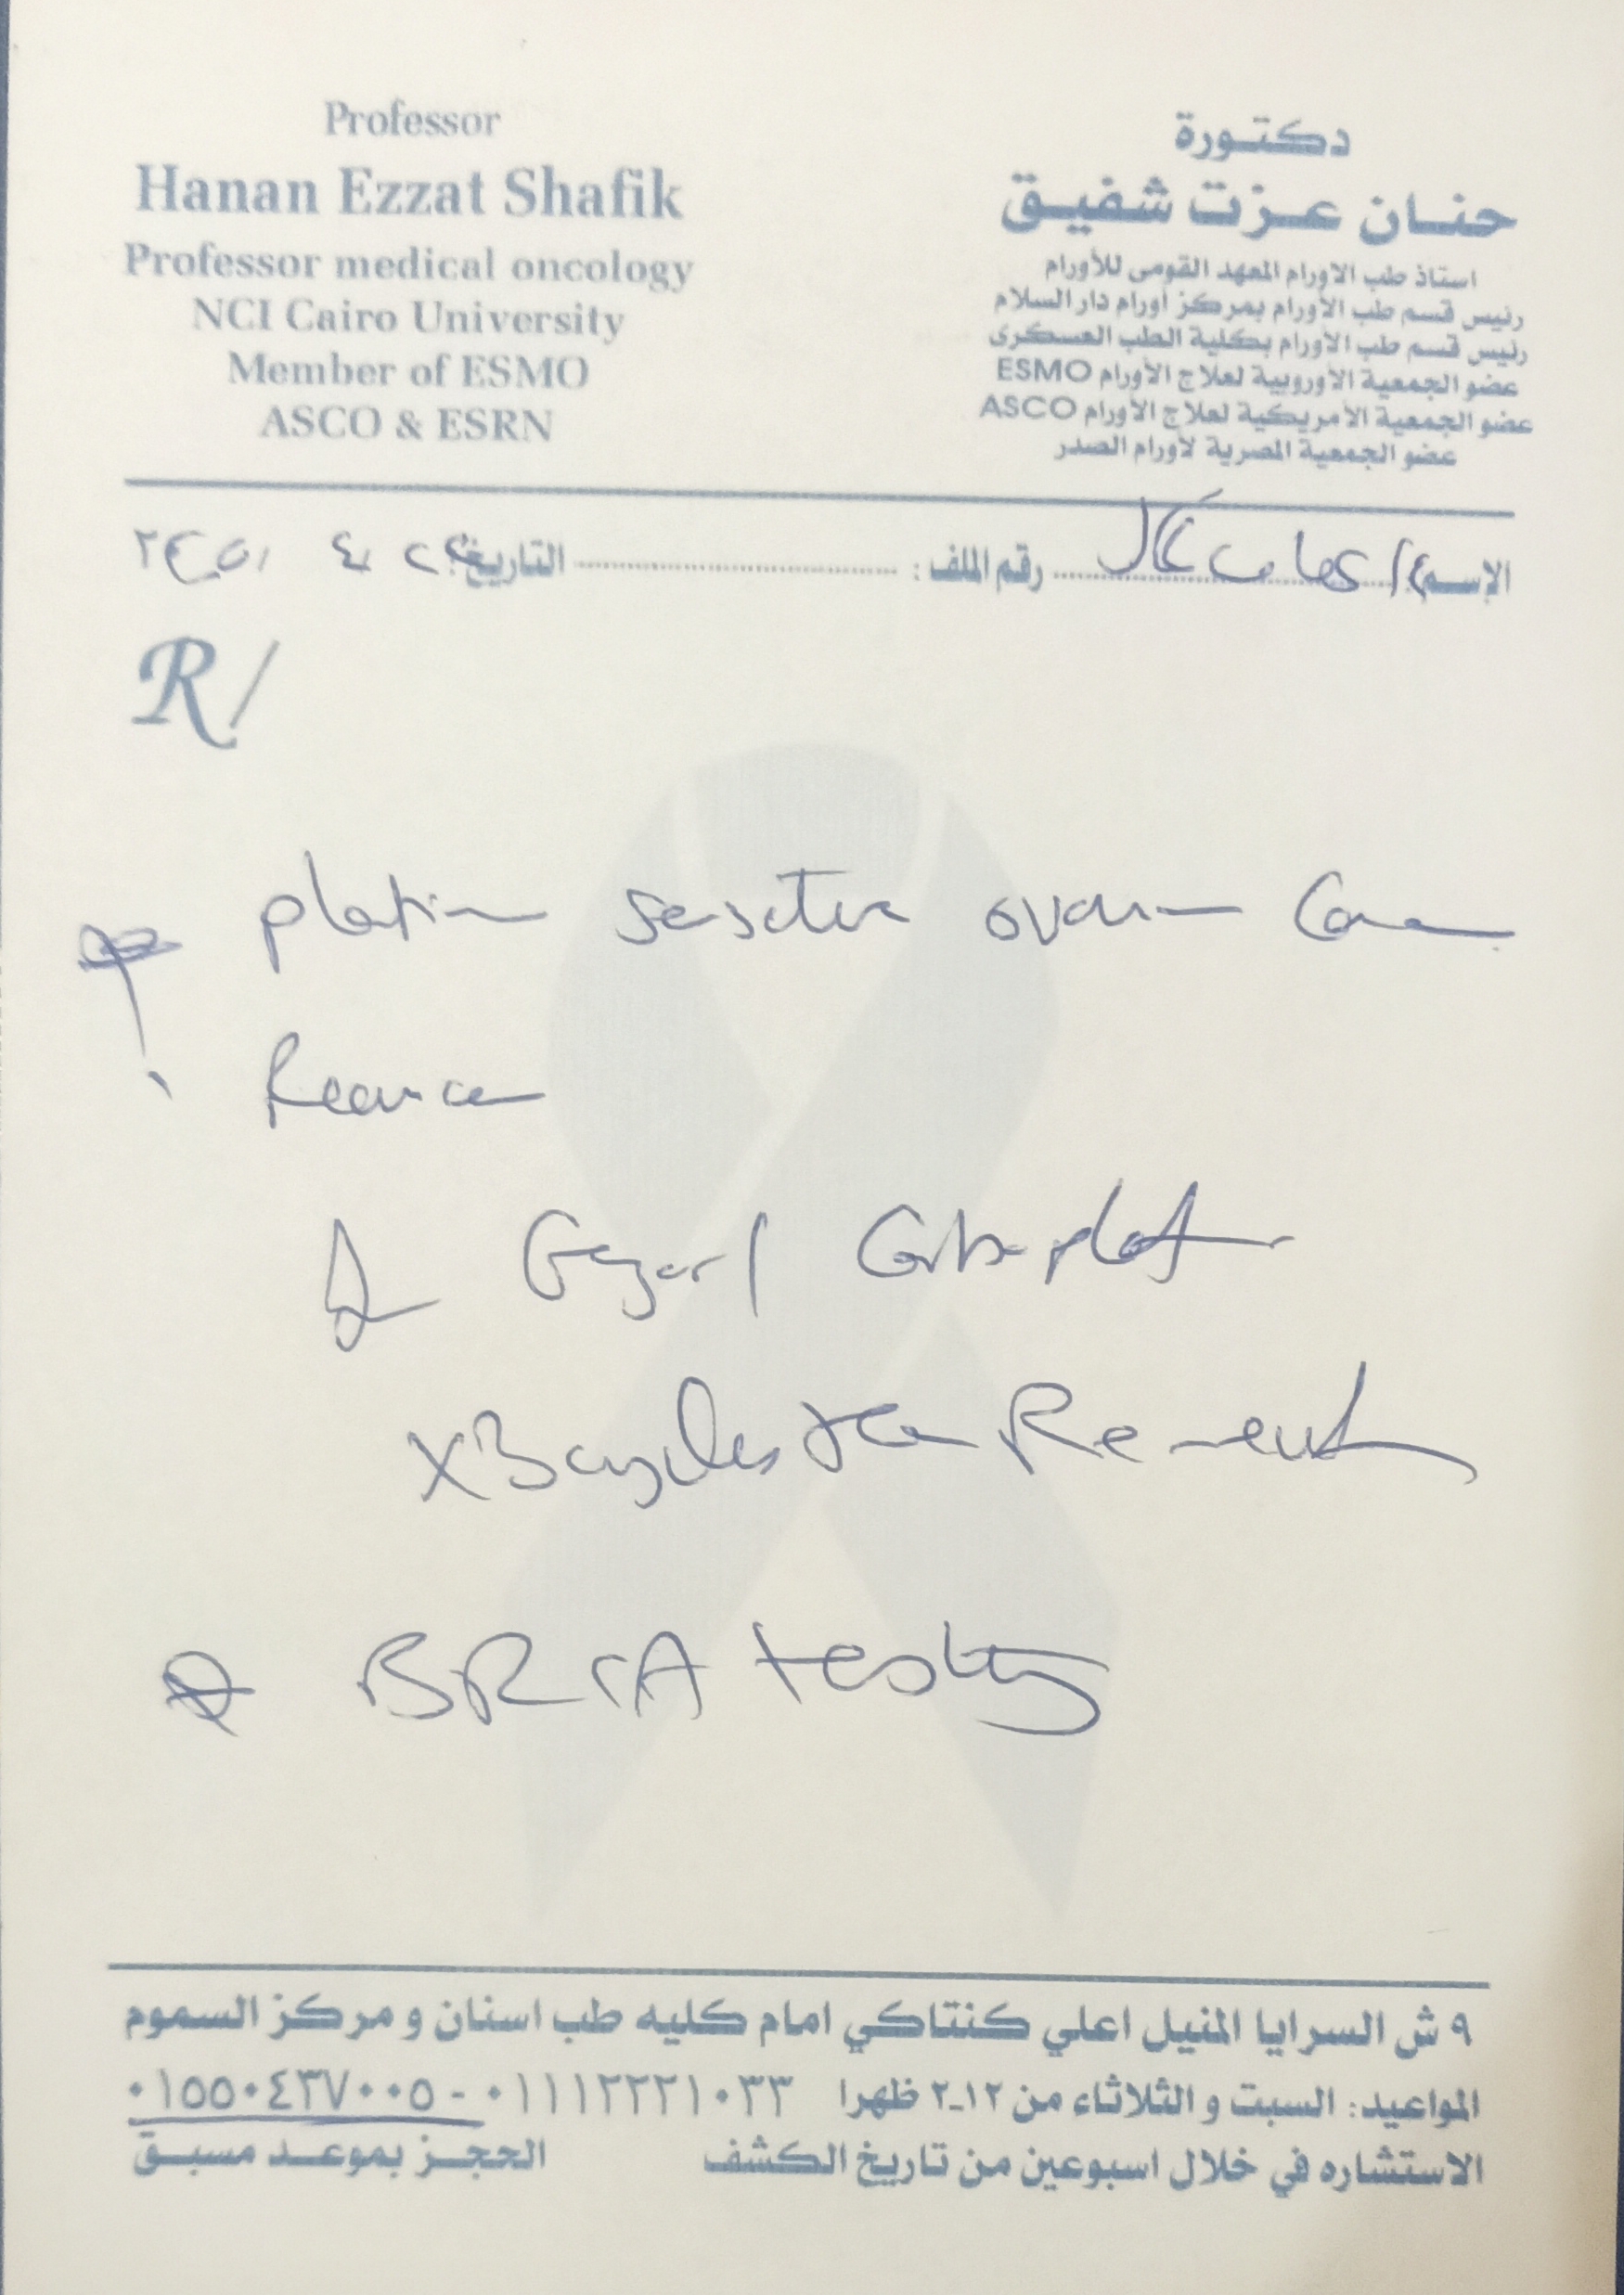 Professor
Hanan Ezzat Shafik
Professor medical oncology
NCI Cairo University
Member of ESMO
ASCO & ESRN
دكتورة
حنان عزت شفيق
استاذ طب الاورام المعهد القومى للأورام
رئيس قسم طب الأورام بمركز أورام دار السلام
رئيس قسم طب الأورام بكلية الطب العسكرى
عضو الجمعية الأوروبية لعلاج الأورام ESMO
عضو الجمعية الأمريكية لعلاج الأورام ASCO
عضو الجمعية المصرية لأورام الصدر
الإسم رقم الملف : التاريخ
R/
platin sensitive ovarian Cancer
Recurrence
Carboplatin
x 3 cycles then
BRCA testing
٩ ش السرايا المنيل اعلي كنتاكي امام كليه طب اسنان و مركز السموم
المواعيد: السبت و الثلاثاء من ١٢-٢ ظهرا ٠١١١٢٢٢١٠٣٣ - ٠١٥٥٠٤٣٧٠٠٥
الاستشاره في خلال اسبوعين من تاريخ الكشف الحجز بموعد مسبق